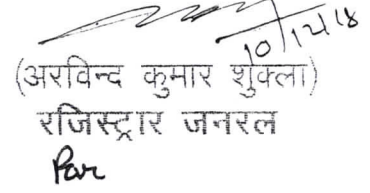 10/12/18
(अरविन्द कुमार शुक्ला)
रजिस्ट्रार जनरल